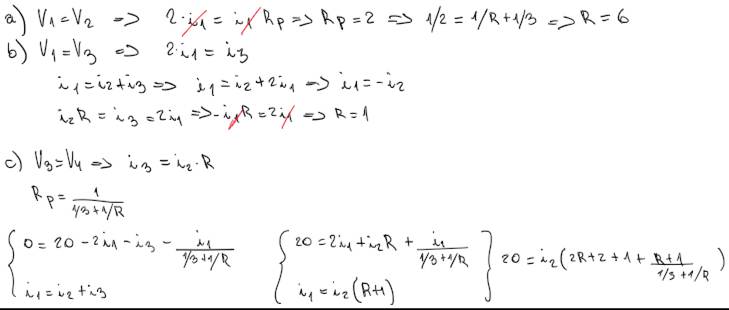 a) V₁=V₂ => 2·i₁ = i₁ Rp => Rp=2 => 1/2 = 1/R+1/3 => R=6
b) V₁=V₃ => 2·i₁ = i₃
i₁=i₂+i₃ => i₁=i₂+2i₁ => i₁=-i₂
i₂R = i₃ = 2i₁ => -i₁R = 2i₁ => R=1
c) V₃=V₄ => i₃ = i₂·R
Rp = 1/(1/3+1/R)
{ 0 = 20 - 2i₁ - i₃ - i₁/(1/3+1/R) { 20 = 2i₁ + i₂R + i₁/(1/3+1/R) } 20 = i₂(2R+2+1+ (R+1)/(1/3+1/R))
i₁=i₂+i₃ i₁ = i₂(R+1)